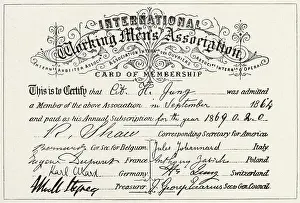 INTERNATIONAL
Working Men's Association
CARD OF MEMBERSHIP
This is to Certify that Cit. H. Jung was admitted
a Member of the above Association in September 1864
and paid as his Annual Subscription for the year 1869 0. 2. 0
R. Shaw Corresponding Secretary for America
Bernard Cor. Sec. for Belgium Jules Johannard Italy
Eugène Dupont France Anthony Zabicki Poland
Karl Marx Germany H. Jung Switzerland
Treasurer J. George Eccarius Sec to Gen. Council